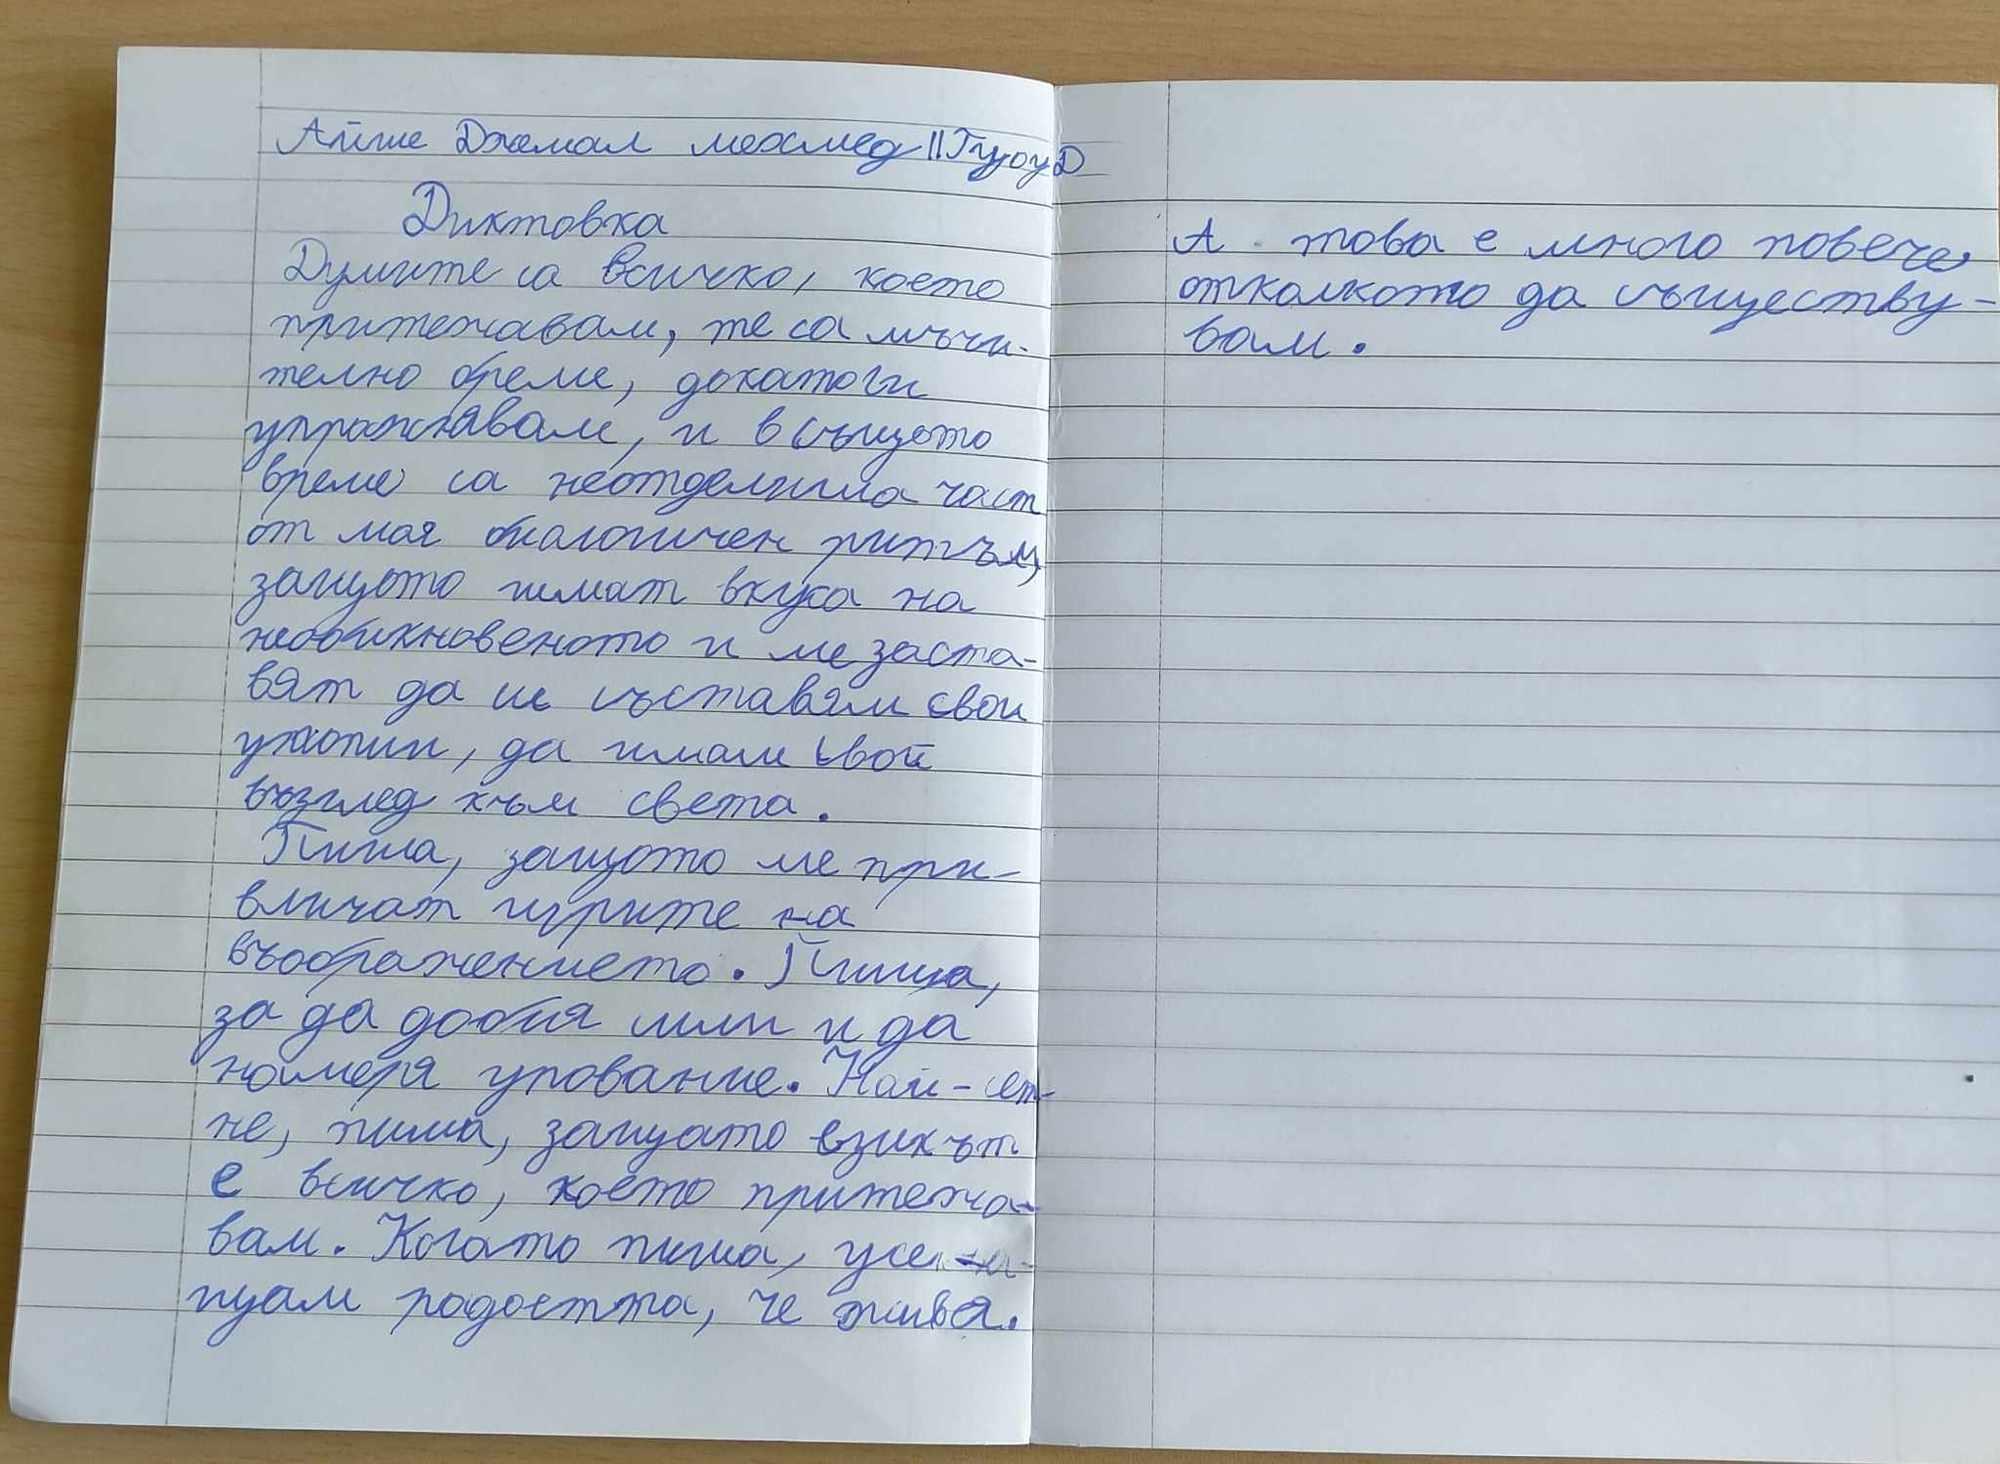 Айше Джемал мехмед II
Диктовка
Думите са всичко, което
притежавам, те са мъчи-
телно бреме, докато ги
упражнявам, и в същото
време са неотделима част
от моя биологичен ритъм,
защото имат вкуса на
необикновеното и ме заста-
вят да си съставям свои
утопии, да имам свой
възглед към света.
Пиша, защото ме при-
вличат игрите на
въображението. Пиша,
за да добия или и да
намеря упование. Най-сет-
не, пиша, защато езикът
е всичко, което притежа-
вам. Когато пиша,
радостта, че живея.
А това е много повече,
отколкото да съществу-
вам.